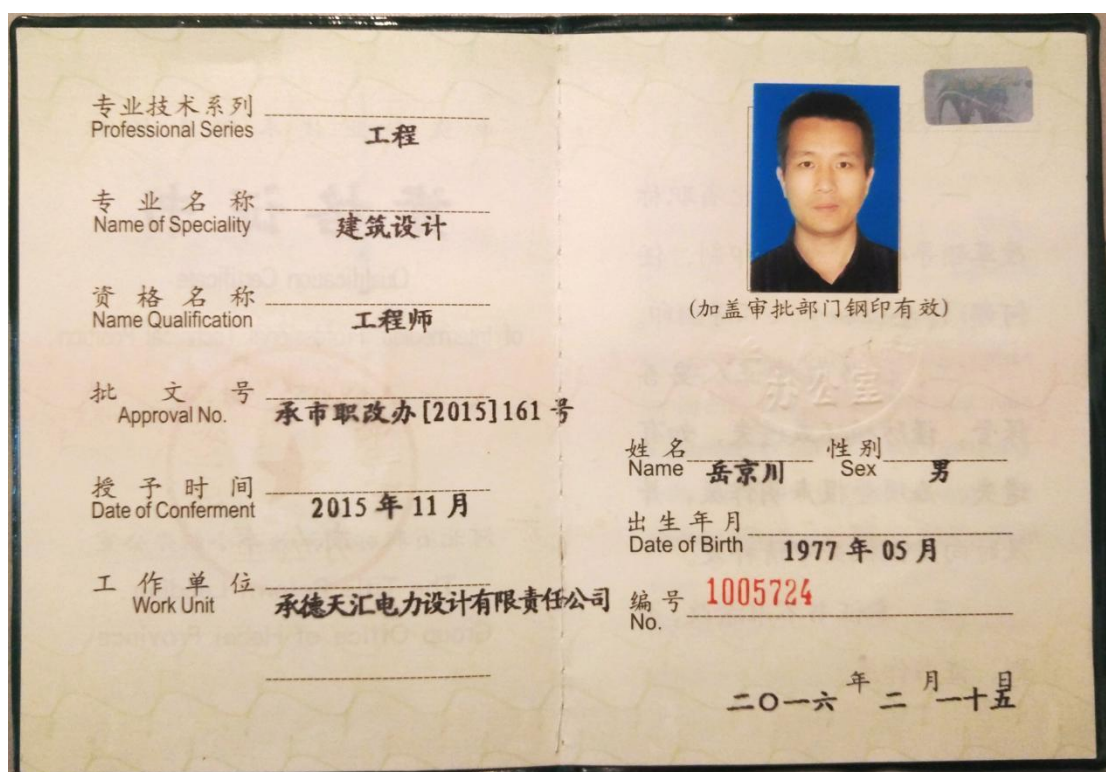 专业技术系列
Professional Series
工程
专业名称
Name of Speciality
建筑设计
资格名称
Name Qualification
工程师
批文号
Approval No.
承市职改办[2015]161号
授予时间
Date of Conferment
2015年11月
工作单位
Work Unit
承德天汇电力设计有限责任公司
(加盖审批部门钢印有效)
办公室
姓名
Name
岳京川
性别
Sex
男
出生年月
Date of Birth
1977年05月
编号
No.
1005724
二〇一六年二月一十五日